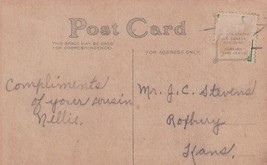 Post Card
THIS SPACE CAN BE USED
FOR CORRESPONDENCE
FOR ADDRESS ONLY
Compliments
of your cousin
Nellie.
Mr. J. C. Stevens
Roxbury
Kans.